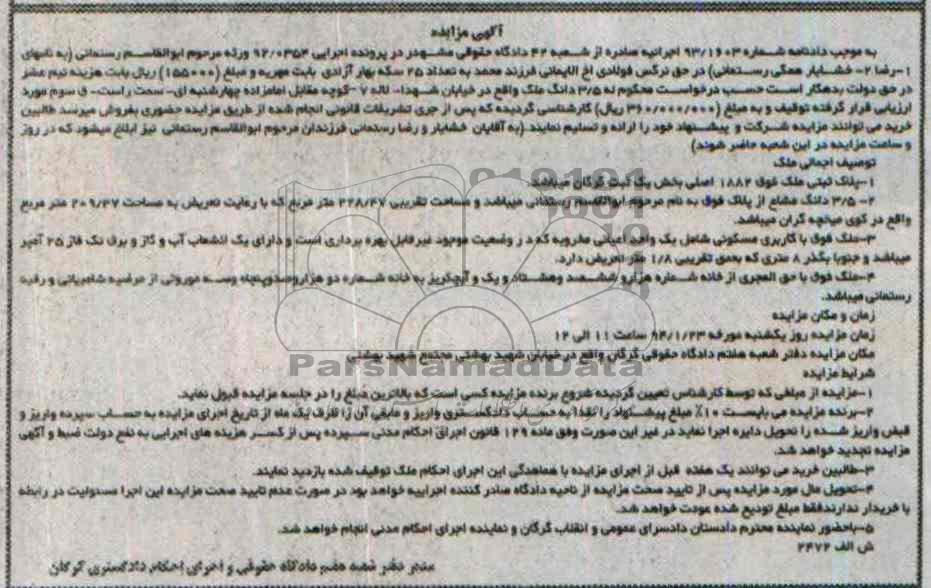 آگهی مزایده
به موجب دادنامه شماره ۹۳/۱۶۰۳ اجرائیه صادره از شعبه ۴۲ دادگاه حقوقی مشهد در پرونده اجرایی ۹۲/۰۳۵۴ ورثه مرحوم ابوالقاسم رستمانی (به نامهای
۱-رضا ۲- خشایار همگی رستمانی) در حق نرگس فولادی اخ الایمانی فرزند محمد به تعداد ۲۵ سکه بهار آزادی بابت مهریه و مبلغ (۱۵۵۰۰۰) ریال بابت هزینه نیم عشر
در حق دولت بدهکار است حسب درخواست محکوم له ۳/۵ دانگ ملک واقع در خیابان شهدا- لاله ۷-کوچه مقابل امامزاده چهارشنبه ای- سمت راست- ق سوم مورد
ارزیابی قرار گرفته توقیف و به مبلغ (۳۶۰/۰۰۰/۰۰۰ ریال) کارشناسی گردیده که پس از جری تشریفات قانونی انجام شده از طریق مزایده حضوری بفروش میرسد طالبین
خرید می توانند مزایده شرکت و پیشنهاد خود را ارائه و تسلیم نمایند (به آقایان خشایار و رضا رستمانی فرزندان مرحوم ابوالقاسم رستمانی نیز ابلاغ میشود که در روز
و ساعت مزایده در این شعبه حاضر شوند)
توصیف اجمالی ملک
۱-پلاک ثبتی ملک فوق ۱۸۸۲ اصلی بخش یک ثبت گرگان میباشد.
۲- ۳/۵ دانگ مشاع از پلاک فوق به نام مرحوم ابوالقاسم رستمانی میباشد و مساحت تقریبی ۲۲۸/۴۷ متر مربع که با رعایت تعریض به مساحت ۲۰۹/۴۷ متر مربع
واقع در کوی میخچه گران میباشد.
۳-ملک فوق با کاربری مسکونی شامل یک واحد اعیانی مخروبه که در وضعیت موجود غیرقابل بهره برداری است و دارای یک انشعاب آب و گاز و برق تک فاز ۲۵ آمپر
میباشد و جنوبا بگذر ۸ متری که بعدی تقریبی ۱/۸ متر تعریض دارد.
۴-ملک فوق با حق المجری از خانه شماره هزارو ششصد وهشتاد و یک و آبچکریز به خانه شماره دو هزاروصدوپنجاه وسه موروثی از مرضیه شامبیاتی و رقیه
رستمانی میباشد.
زمان و مکان مزایده
زمان مزایده روز یکشنبه مورخه ۹۴/۱/۲۳ ساعت ۱۱ الی ۱۲
مکان مزایده دفتر شعبه هفتم دادگاه حقوقی گرگان واقع در خیابان شهید بهشتی مجتمع شهید بهشتی
شرایط مزایده
۱-مزایده از مبلغی که توسط کارشناس تعیین گردیده شروع برنده مزایده کسی است که بالاترین مبلغ را در جلسه مزایده قبول نماید.
۲-برنده مزایده می بایست ۱۰٪ مبلغ پیشنهاد را نقدا به حساب دادگستری واریز و مابقی آن را ظرف یک ماه از تاریخ اجرای مزایده به حساب سپرده واریز و
قبض واریز شده را تحویل دایره اجرا نماید در غیر این صورت وفق ماده ۱۲۹ قانون اجرای احکام مدنی سپرده پس از کسر هزینه های اجرایی به نفع دولت ضبط و آگهی
مزایده تجدید خواهد شد.
۳-طالبین خرید می توانند یک هفته قبل از اجرای مزایده با هماهنگی این اجرای احکام ملک توقیف شده بازدید نمایند.
۴-تحویل مال مورد مزایده پس از تایید صحت مزایده از ناحیه دادگاه صادر کننده اجراییه خواهد بود در صورت عدم تایید صحت مزایده این اجرا مسئولیت در رابطه
با خریدار ندارند فقط مبلغ تودیع شده عودت خواهد شد.
۵-باحضور نماینده محترم دادستان دادسرای عمومی و انقلاب گرگان و نماینده اجرای احکام مدنی انجام خواهد شد.
ش الف ۲۴۷۲
مدیر دفتر شعبه هفتم دادگاه حقوقی و اجرای احکام دادگستری گرگان
ParsNamadData